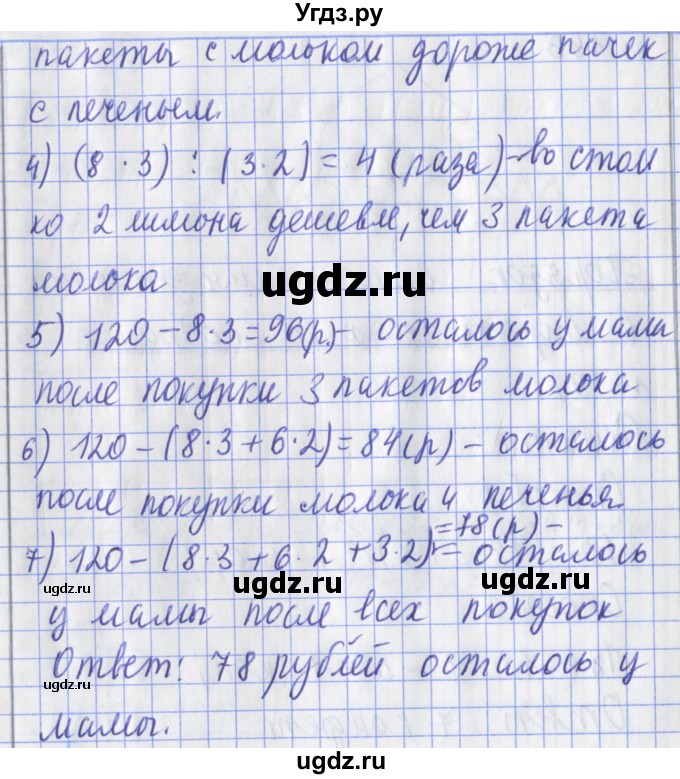 Угдз.ру
пакеты с молоком дороже пачек
с печеньем.
4) (8 · 3) : (3·2) = 4 (раза) – во стол
ко 2 лимона дешевле, чем 3 пакета
молока
ugdz.ru
5) 120 – 8·3 = 96(р) – осталось у мамы
после покупки 3 пакетов молока
6) 120 – (8·3 + 6·2) = 84(р) – осталось
после покупки молока и печенья.
=78(р) –
7) 120 – (8·3 + 6·2 + 3·2) – осталось
ugdz.ru ugdz.ru ugdz.ru
у мамы после всех покупок
Ответ: 78 рублей осталось у
ugdz.ru
мамы.
ugdz.ru ugdz.ru